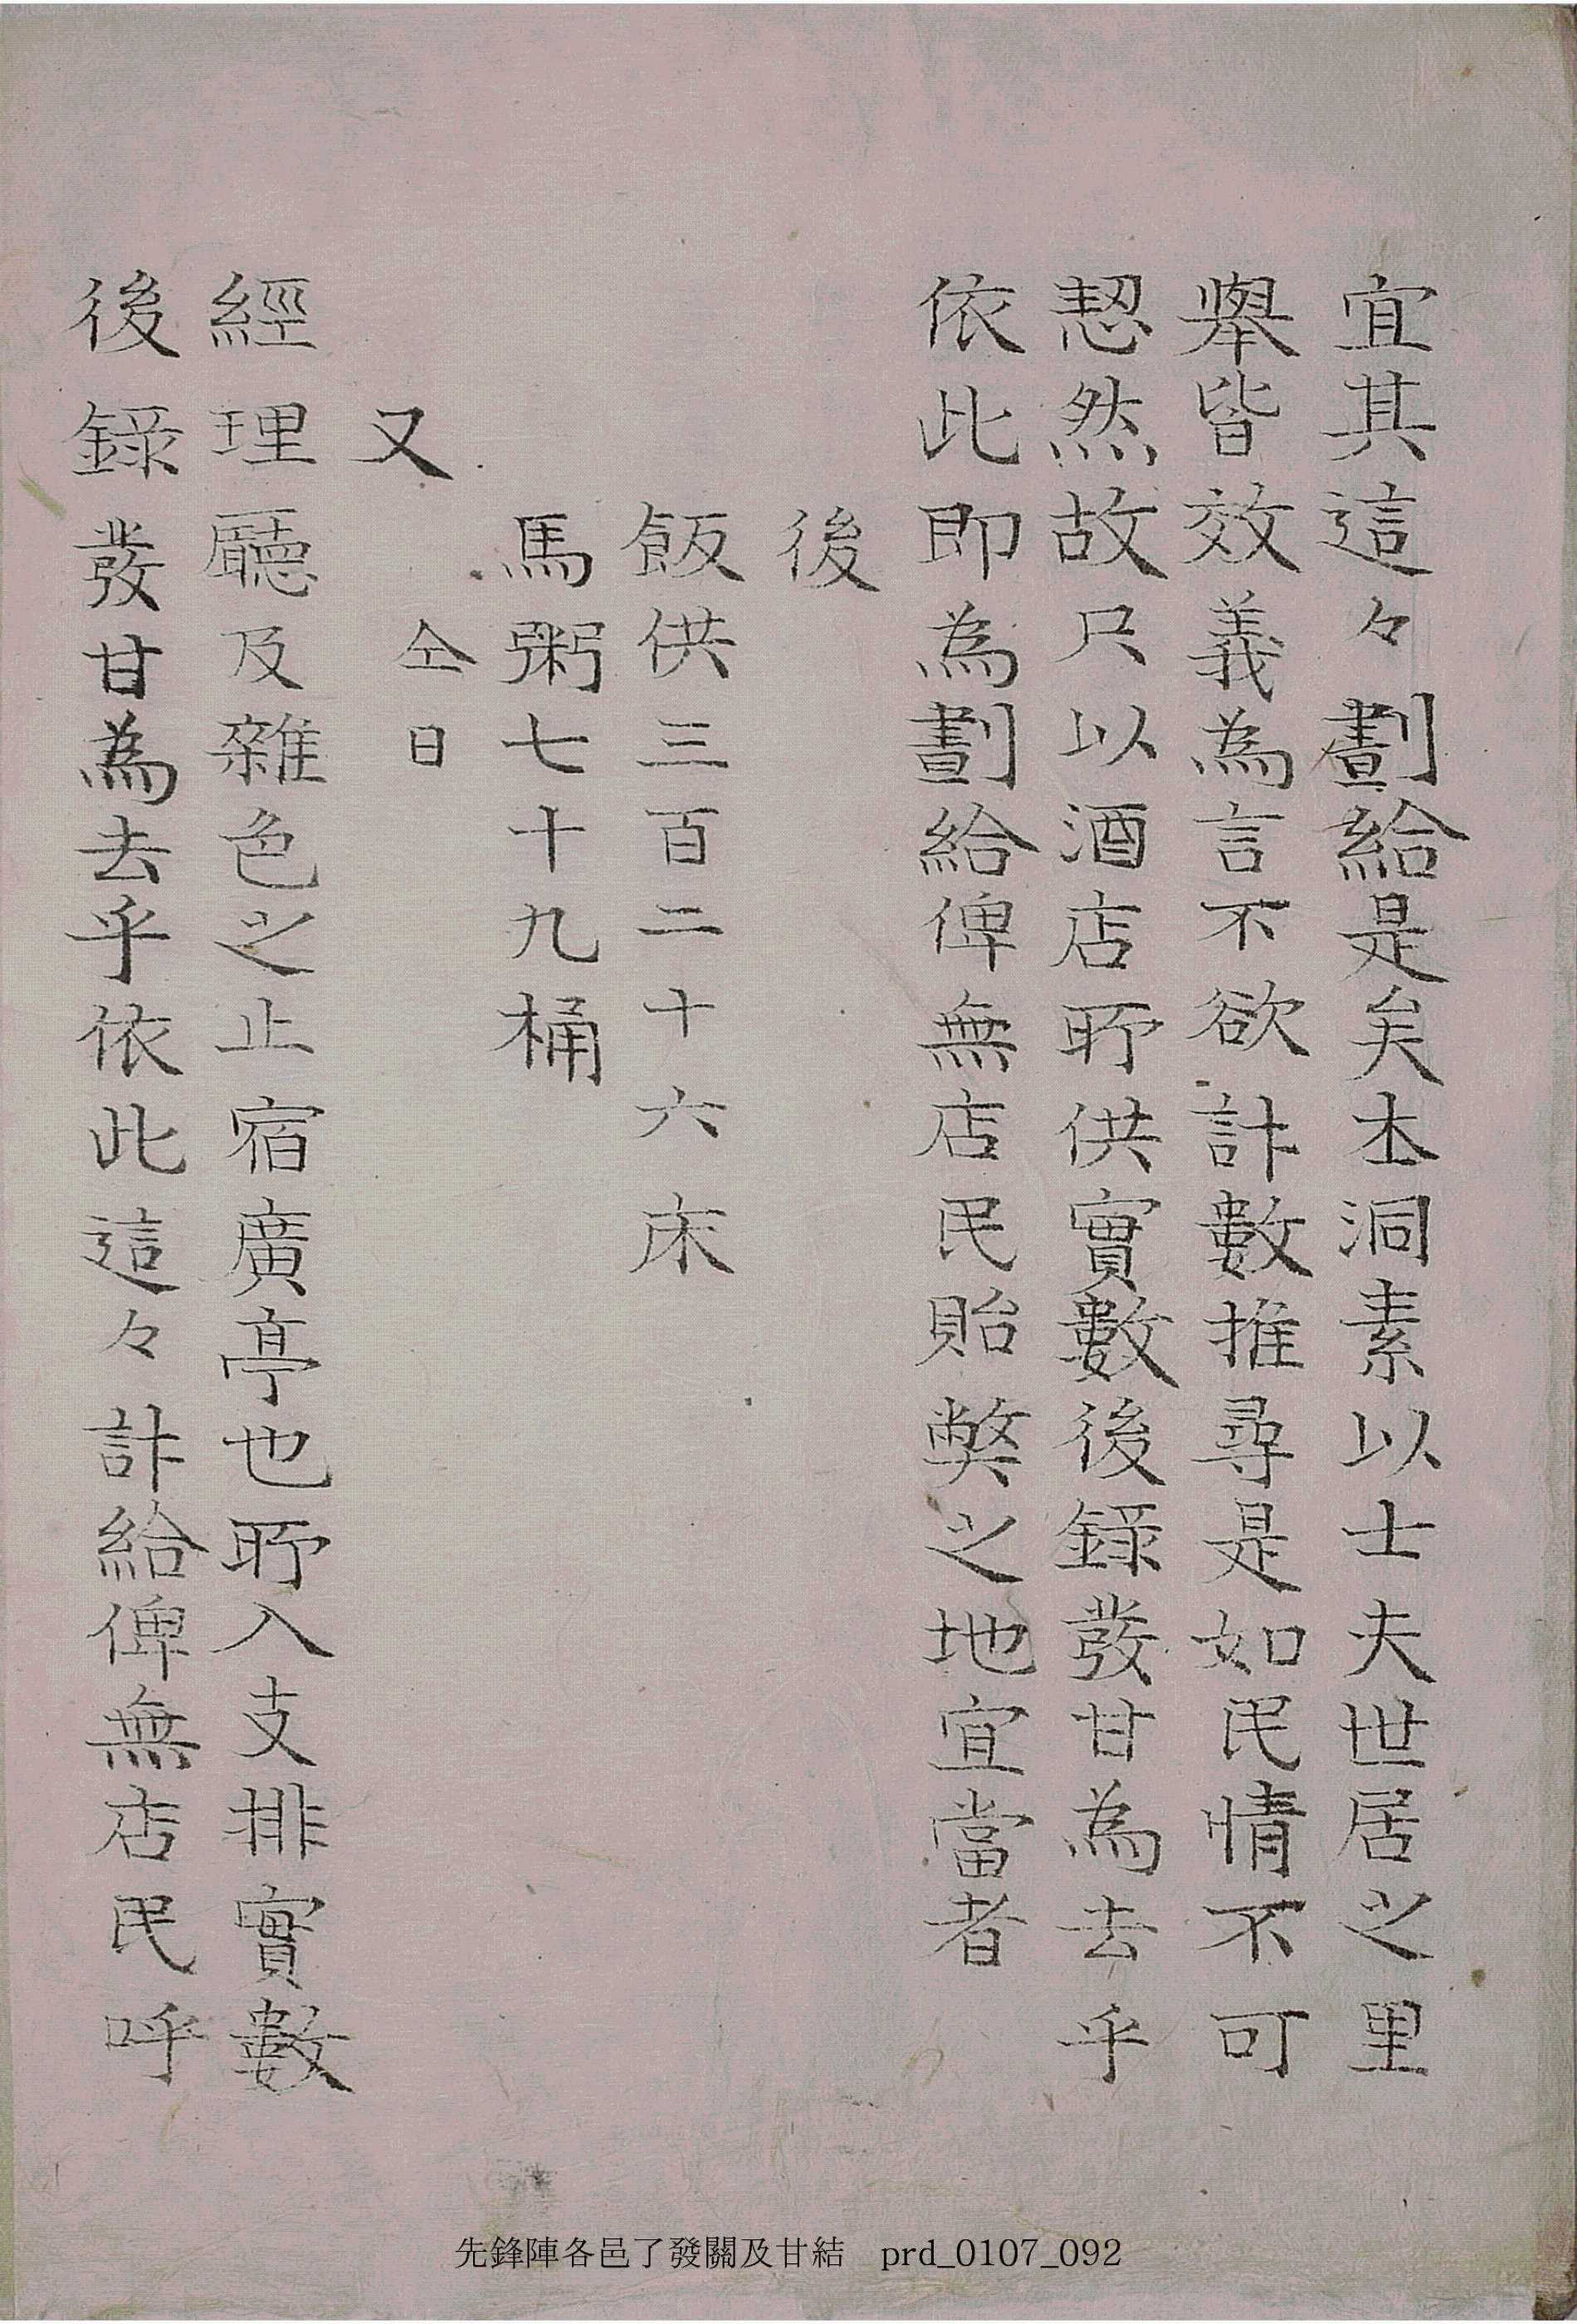 宜其這々劃給是矣本洞素以士夫世居之里
擧皆效義為言不欲計數推尋是如民情不可
恝然故只以酒店所供實數後錄發甘為去乎
依此即為劃給俾無店民貽弊之地宜當者
後
飯供三百二十六床
馬粥七十九桶
又 仝日
經理廳及雜色之止宿廣亭也所入支排實數
後錄發甘為去乎依此這々計給俾無店民呼
先鋒陣各邑了發關及甘結 prd_0107_092